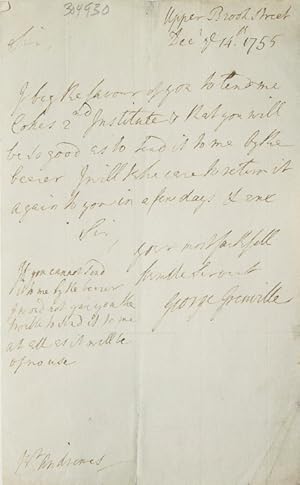 304930
Upper Brook Street
Dec.r ye 14th 1755
Sir,
I beg the favour of you to lend me
Cokes 2nd Institute & that you will
be so good as to send it to me by the
bearer I will take care to return it
again to you in a few days & am
Sir,
your most faithfull
humble Servant
George Grenville
If you cannot send
it to me by the bearer
I wou'd not give you the
trouble to send it to me
at all as it will be
of no use
Mr Andrews